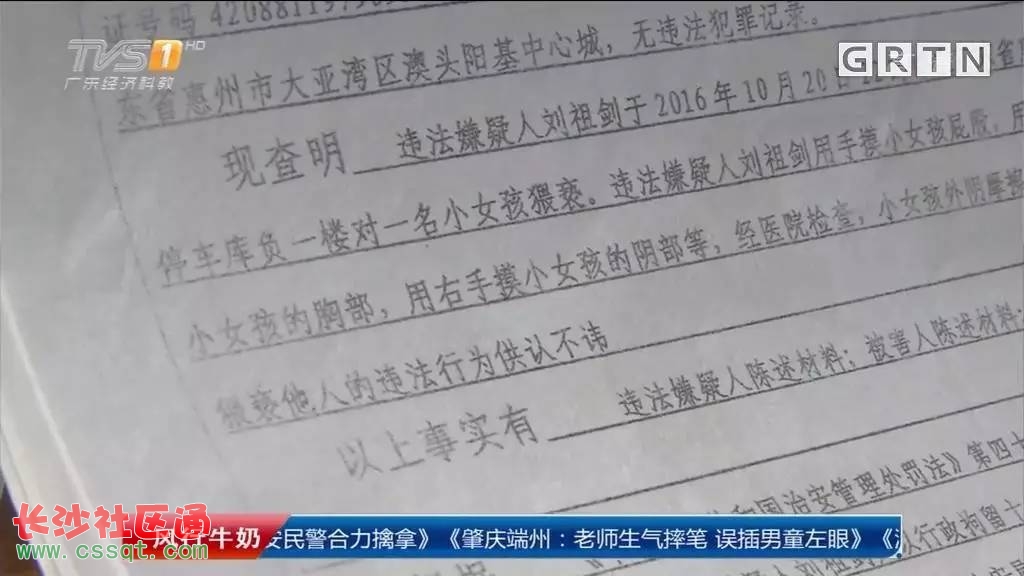 TVS1 HD
广东经济科教
GRTN
证号码
东省惠州市大亚湾区澳头阳基中心城，无违法犯罪记录。
现查明 违法嫌疑人刘祖剑于2016年10月20日
停车库负一楼对一名小女孩猥亵。违法嫌疑人刘祖剑用手摸小女孩屁股，用
小女孩的胸部，用右手摸小女孩的阴部等，经医院检查，小女孩外阴
猥亵他人的违法行为供认不讳
以上事实有 违法嫌疑人陈述材料；被害人陈述材料；
和国治安管理处罚法》第四十
行政拘留十
长沙社区通
www.cssqt.com
风行牛奶 安民警合力擒拿》《肇庆端州：老师生气摔笔 误插男童左眼》《